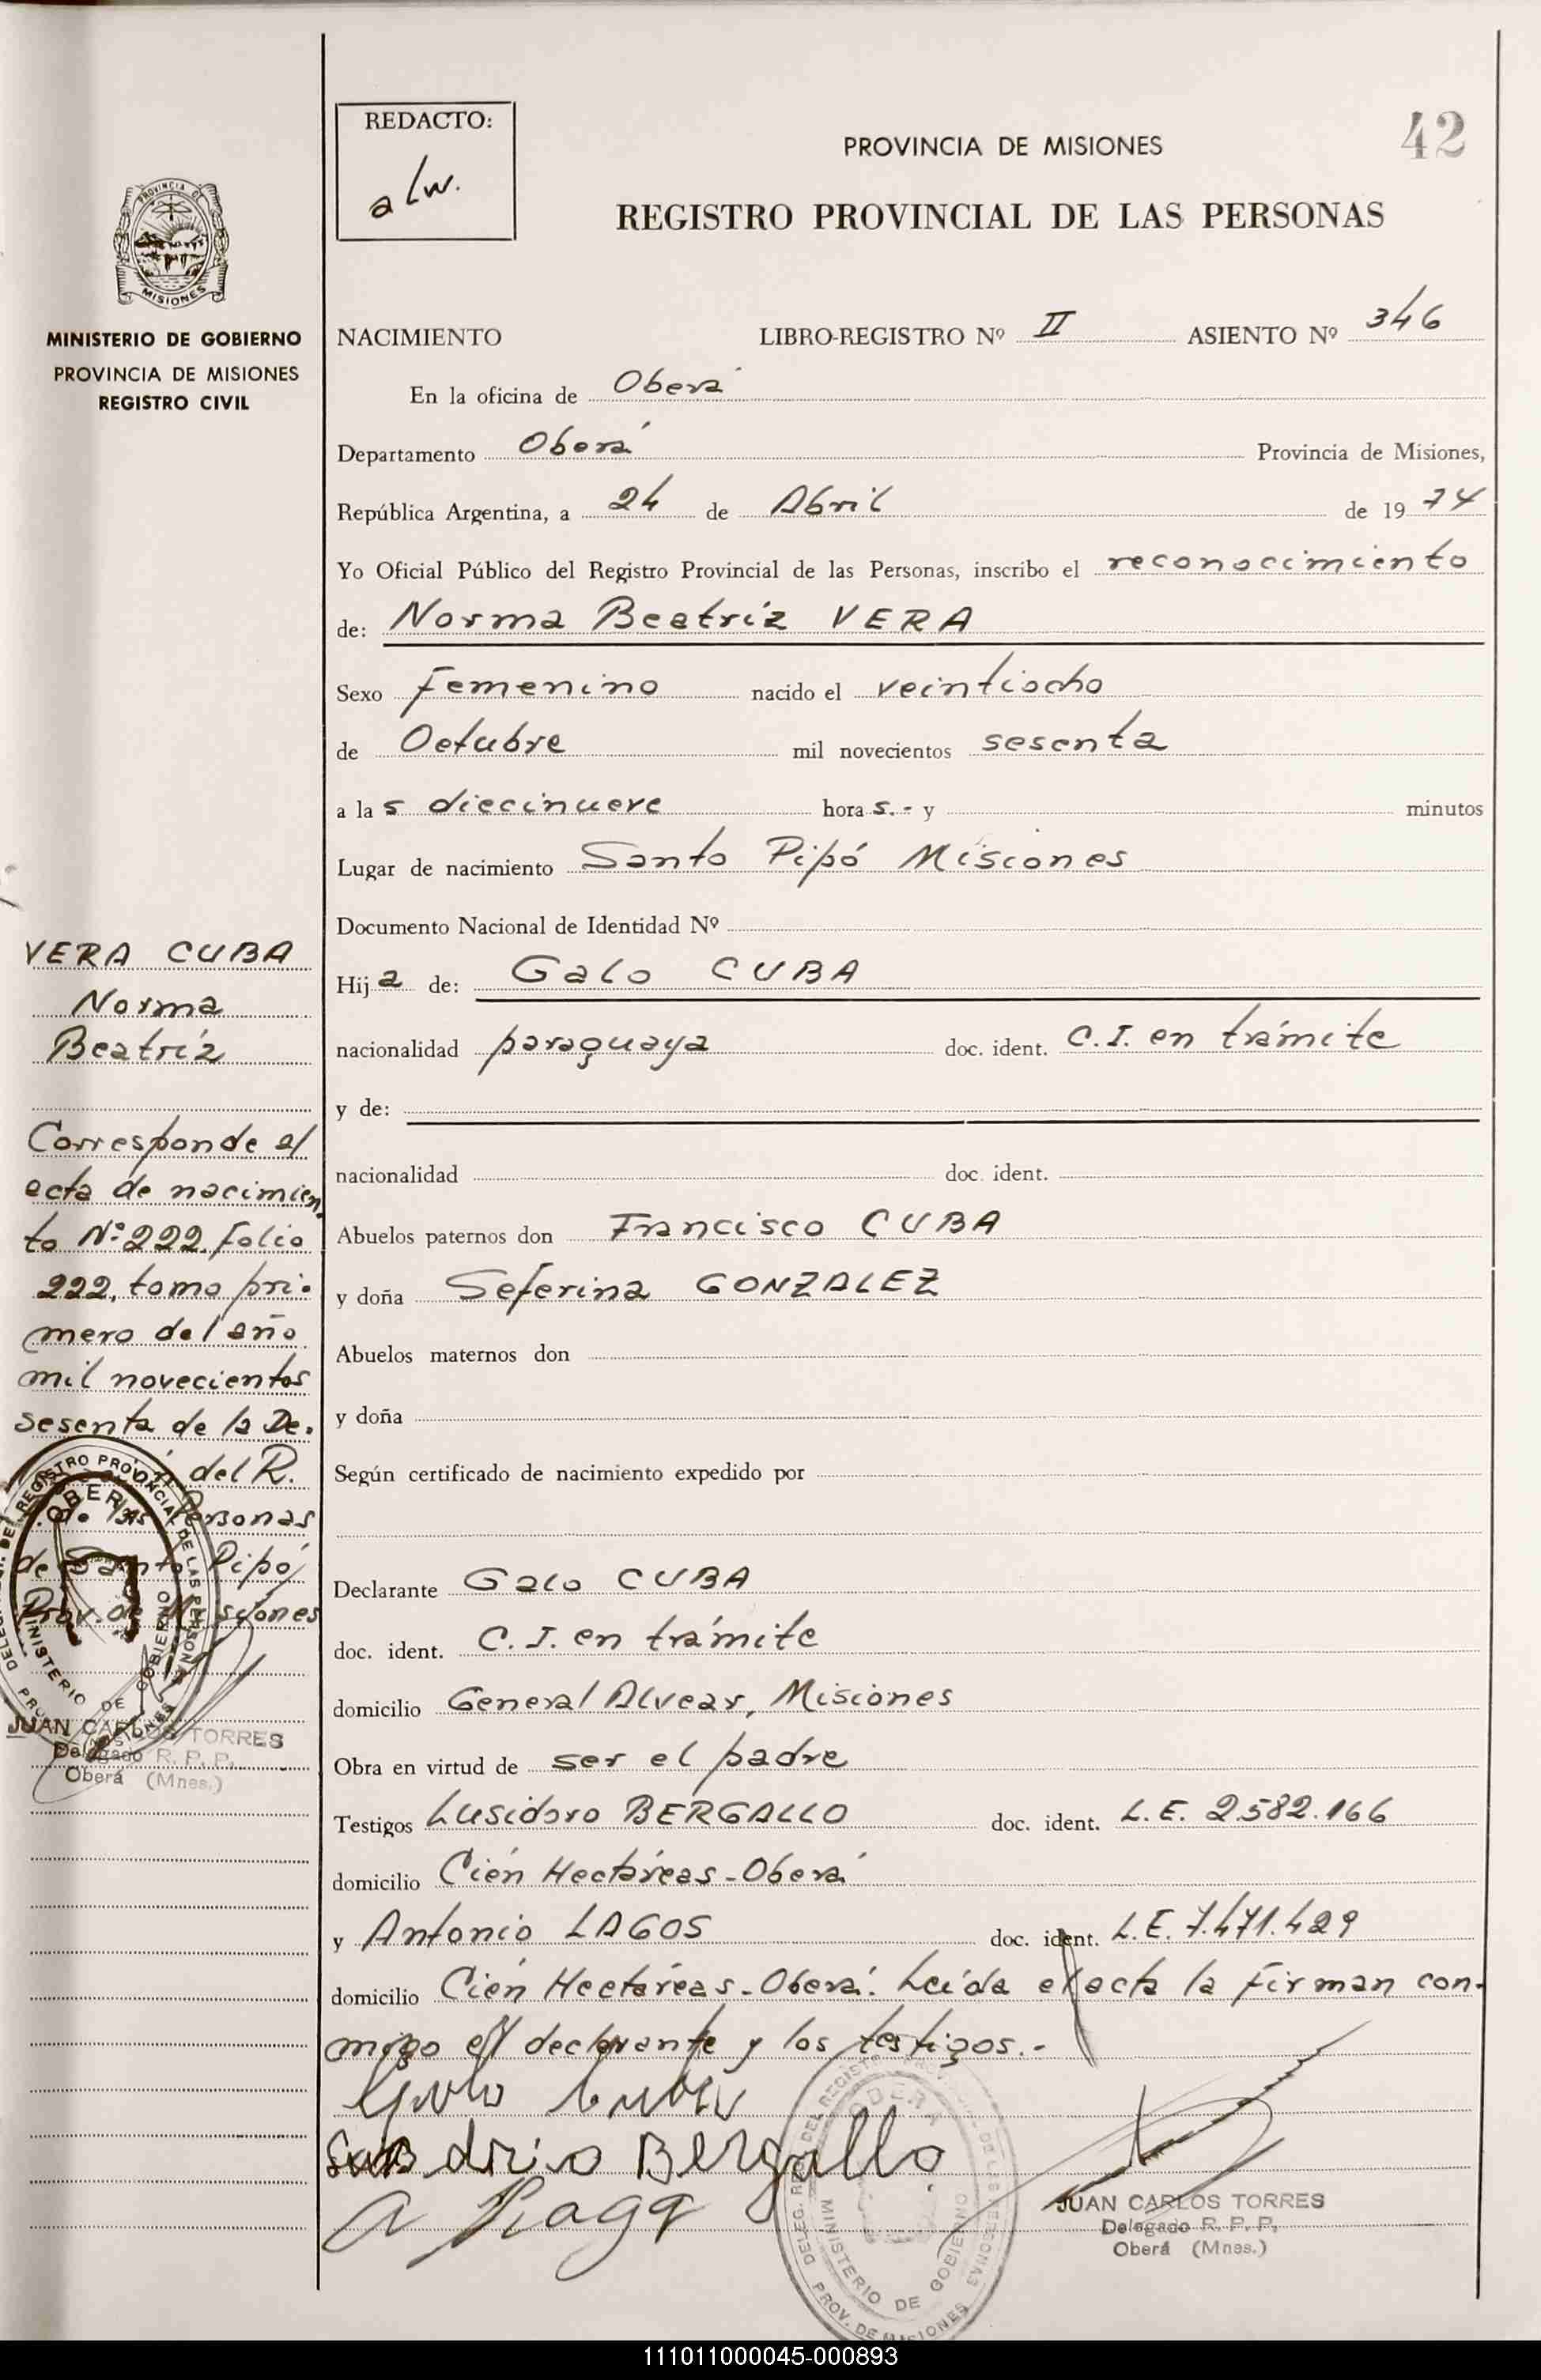 REDACTO:
alw.
42
PROVINCIA DE MISIONES
REGISTRO PROVINCIAL DE LAS PERSONAS
PROVINCIA DE
MISIONES
MINISTERIO DE GOBIERNO
PROVINCIA DE MISIONES
REGISTRO CIVIL
NACIMIENTO LIBRO-REGISTRO Nº II ASIENTO Nº 346
En la oficina de Oberá
Departamento Oberá Provincia de Misiones,
República Argentina, a 24 de Abril de 1974
Yo Oficial Público del Registro Provincial de las Personas, inscribo el reconocimiento
de: Norma Beatríz VERA
Sexo femenino nacido el veintiocho
de Octubre mil novecientos sesenta
a las diecinueve horas.- y minutos
Lugar de nacimiento Santo Pipó Misiones
Documento Nacional de Identidad Nº
Hija de: Galo CUBA
nacionalidad paraguaya doc. ident. C.I. en trámite
y de:
nacionalidad doc. ident.
Abuelos paternos don Francisco CUBA
y doña Seferina GONZALEZ
Abuelos maternos don
y doña
Según certificado de nacimiento expedido por
Declarante Galo CUBA
doc. ident. C.I. en trámite
domicilio General Alvear, Misiones
Obra en virtud de ser el padre
Testigos Lusidoro BERGALLO doc. ident. L.E. 2.582.166
domicilio Cien Hectáreas-Oberá
y Antonio LAGOS doc. ident. L.E. 7.471.429
domicilio Cien Hectáreas-Oberá. Leída el acta la firman con-
migo el declarante y los testigos.-
Galo Cuba
Bergallo
JUAN CARLOS TORRES
Delegado R. P. P.
Oberá (Mnes.)
DELEG. REG. DEL REGISTRO PROVINCIAL DE LAS PERSONAS
OBERA
MINISTERIO DE GOBIERNO
PROV. DE MISIONES
VERA CUBA
Norma
Beatríz
Corresponde al
acta de nacimien
to Nº 222, folio
222, tomo pri-
mero del año
mil novecientos
sesenta de la De-
del R.
P. de las Personas
de Santo Pipó
Prov. de Misiones
REGISTRO PROVINCIAL DE LAS PERSONAS
OBERA
MINISTERIO DE GOBIERNO
JUAN CARLOS TORRES
Delegado R. P. P.
Oberá (Mnes.)
111011000045-000893